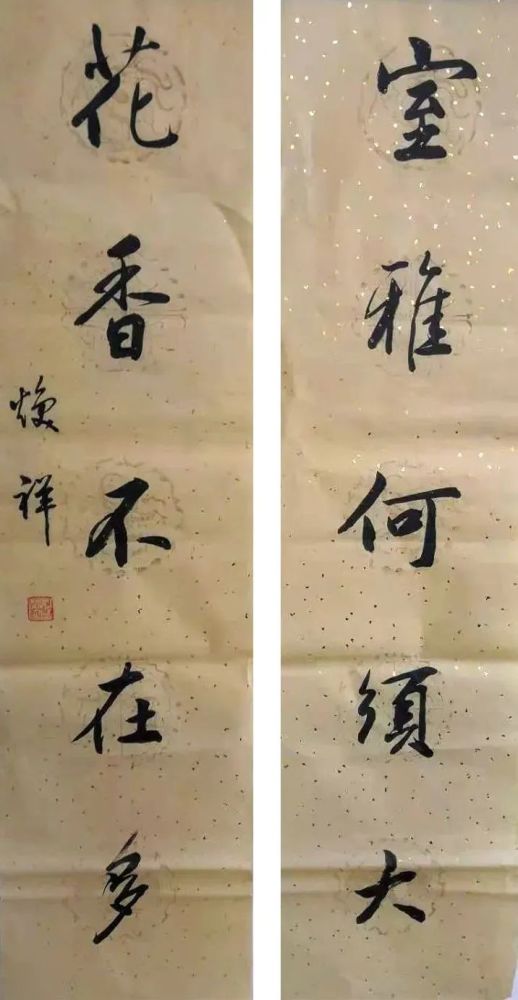 室雅何須大
花香不在多
焕祥